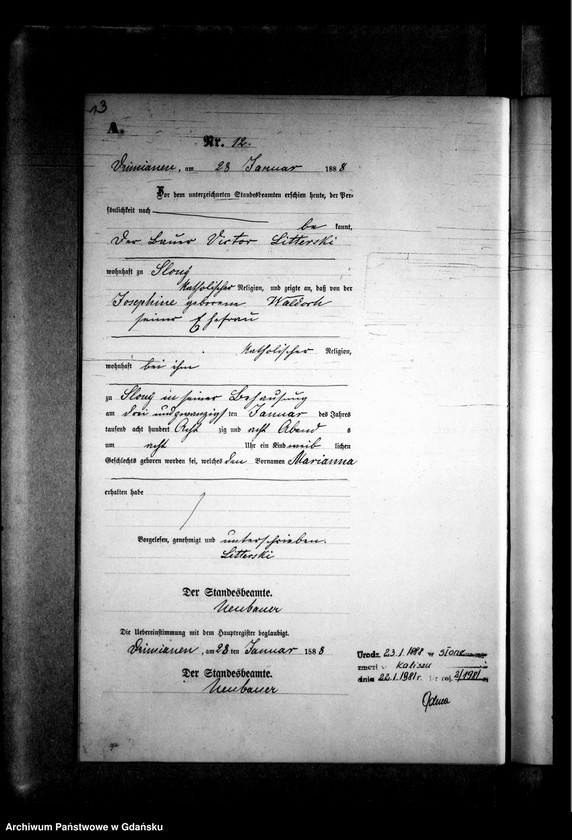 13
A.
Nr. 12.
Dzimianen, am 28 Januar 1888
Vor dem unterzeichneten Standesbeamten erschien heute, der Per-
sönlichkeit nach
be kannt,
der Bauer Victor Litterski
wohnhaft zu
katholischer Religion, und zeigte an, daß von der
Josephine geborenen
seiner Ehefrau
katholischer Religion,
wohnhaft bei ihm
zu in seiner Behausung
am drei und zwanzigsten Januar des Jahres
tausend acht hundert Acht zig und acht Abend s
um acht Uhr ein Kind weib lichen
Geschlechts geboren worden sei, welches den Vornamen Marianna
erhalten habe
Vorgelesen, genehmigt und unterschrieben.
Litterski
Der Standesbeamte.
Neubauer
Die Uebereinstimmung mit dem Hauptregister beglaubigt.
Dzimianen, am 28 ten Januar 1888
Der Standesbeamte.
Neubauer
Urodz. 23.1.1888 w
zmarł w Kaliszu
dnia 22.1.1981 r. 2/1981
Archiwum Państwowe w Gdańsku